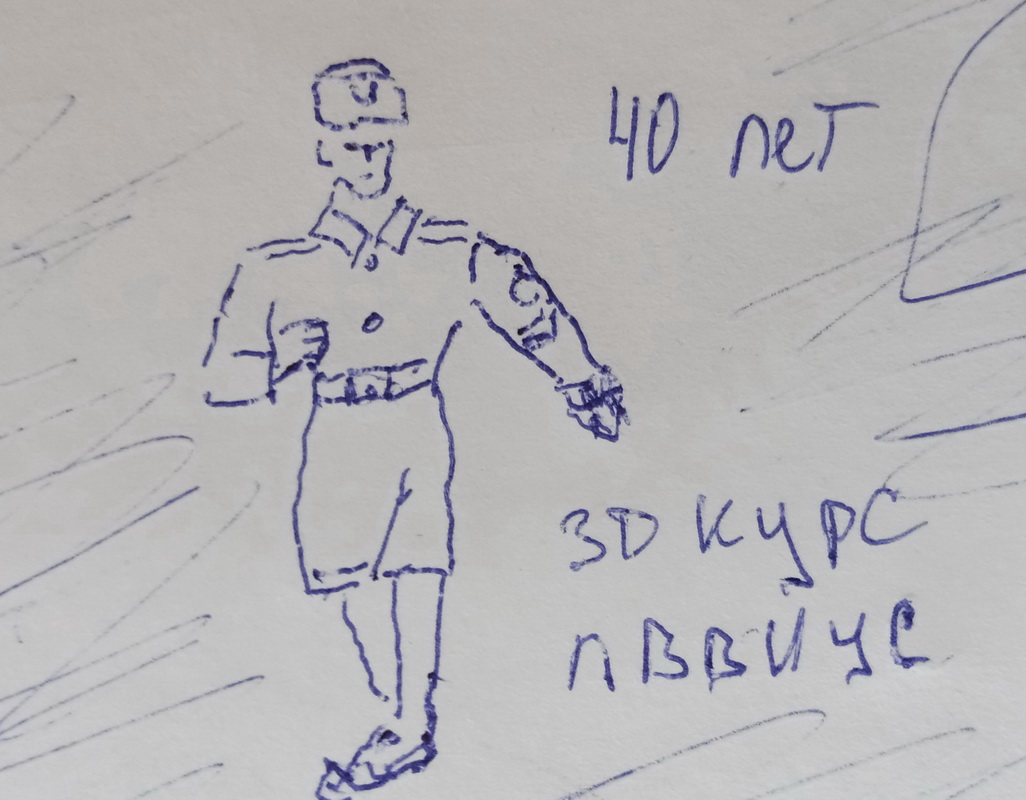 40 лет
30 курс
ПВВИУС